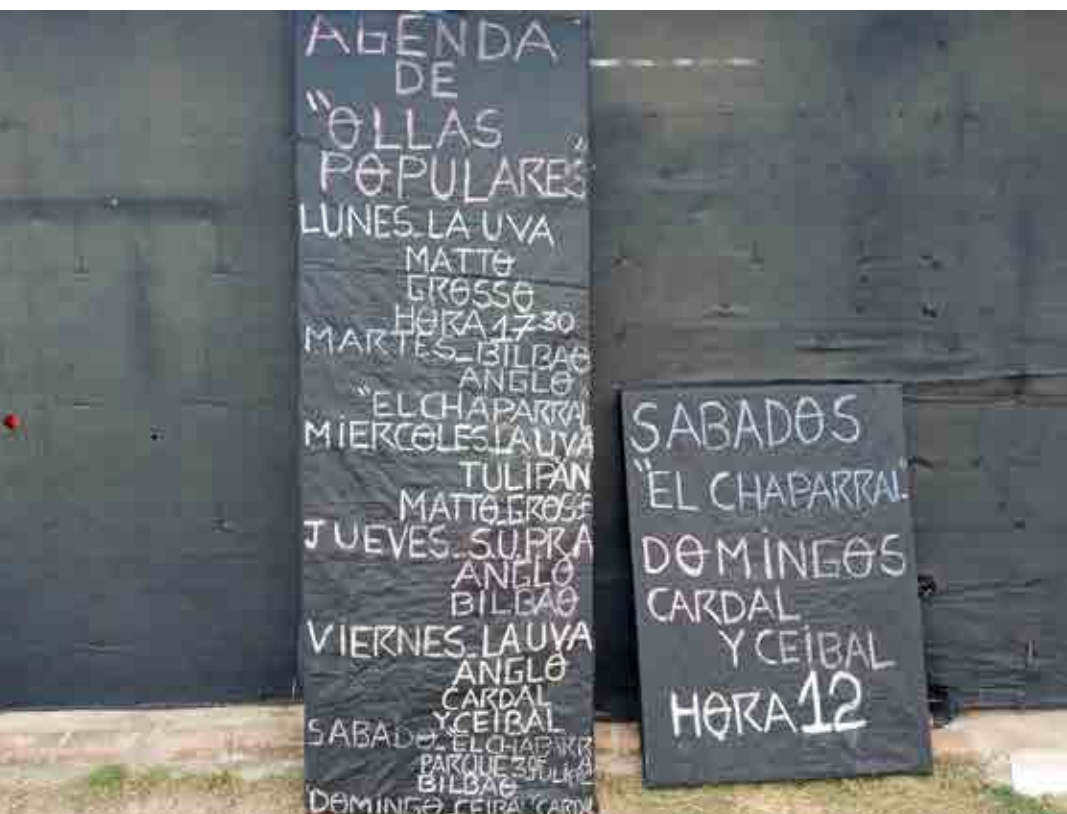 AGENDA
DE
"OLLAS
POPULARES"
LUNES_LA UVA
MATTO
GROSSO
HORA 17 30
MARTES_BILBAO
ANGLO
"EL CHAPARRAL
MIERCOLES_LA UVA
TULIPAN
MATTO GROSS
JUEVES_S.U.P.R.A
ANGLO
BILBAO
VIERNES_LA UVA
ANGLO
CARDAL
Y CEIBAL
SABADO_EL CHAPARR
PARQUE 3 DE
BILBAO
DOMINGO CEIBAL CARDAL
SABADOS
"EL CHAPARRAL"
DOMINGOS
CARDAL
Y CEIBAL
HORA 12